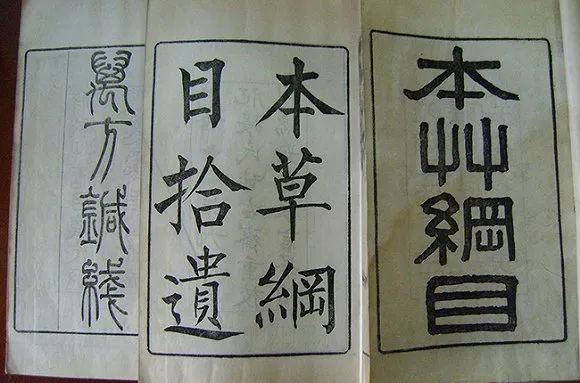 本艸綱目
本草綱
目拾遺
萬方鍼綫